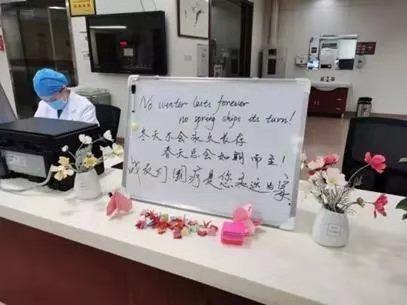 No winter lasts forever
no spring skips its turn!
冬天不会永久长存
春天总会如期而至！
战友们 医疗是您永远的家